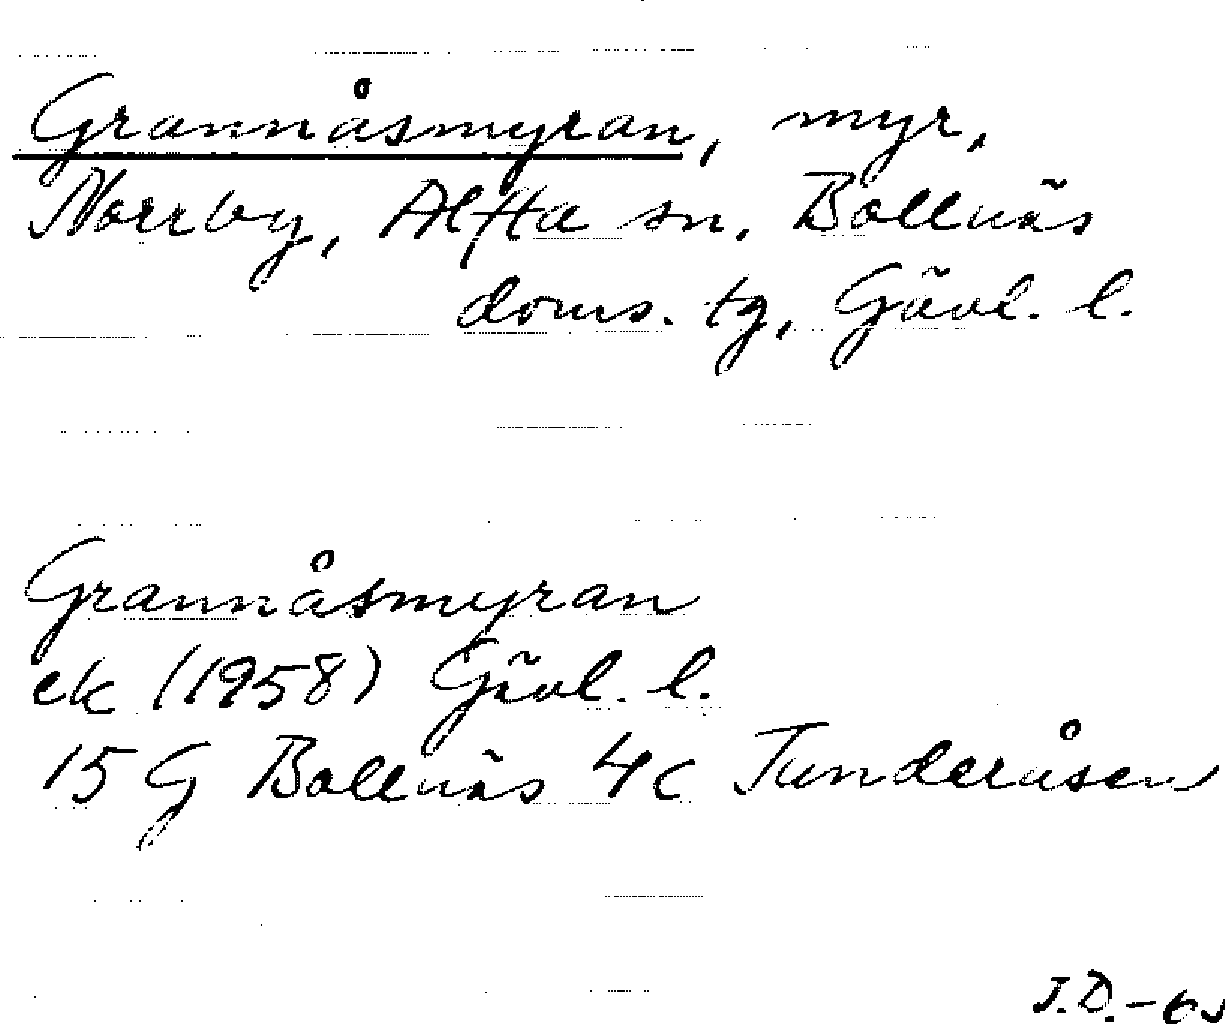 Grannåsmyran, myr,
Norrby, Alfta sn. Bollnäs
doms. tg, Gävl. l.
Grannåsmyran
ek (1958) Gävl. l.
15 G Bollnäs 4c Tunderåsen
J.D.-